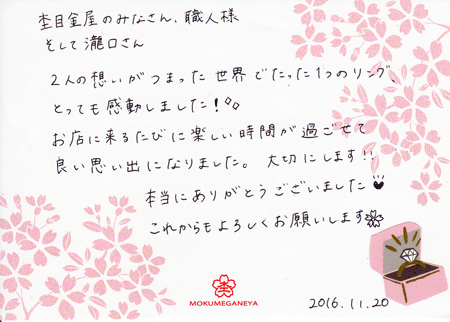 杢目金屋のみなさん、職人様
そして瀧口さん
2人の想いがつまった世界でたった1つのリング、
とっても感動しました!
お店に来るたびに楽しい時間が過ごせて
良い思い出になりました。大切にします!!
本当にありがとうございました
これからもよろしくお願いします
杢
MOKUMEGANEYA
2016.11.20